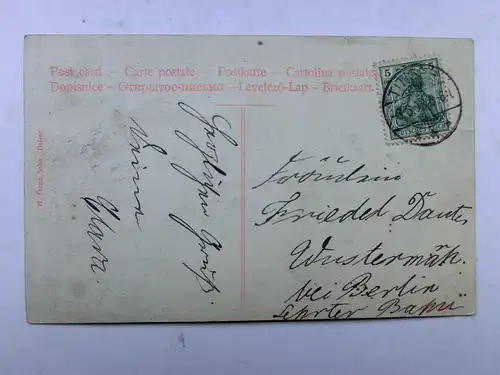 Post card - Carte postale - Postkarte - Cartolina postale
Dopisnice - Открытое-письмо - Levelező-Lap - Briefkaart.
5 5
Herzlichen Gruß.
Deine
Klara.
Fräulein
Friedel Dautz
Wustermark.
bei Berlin
Lehrter Bahn